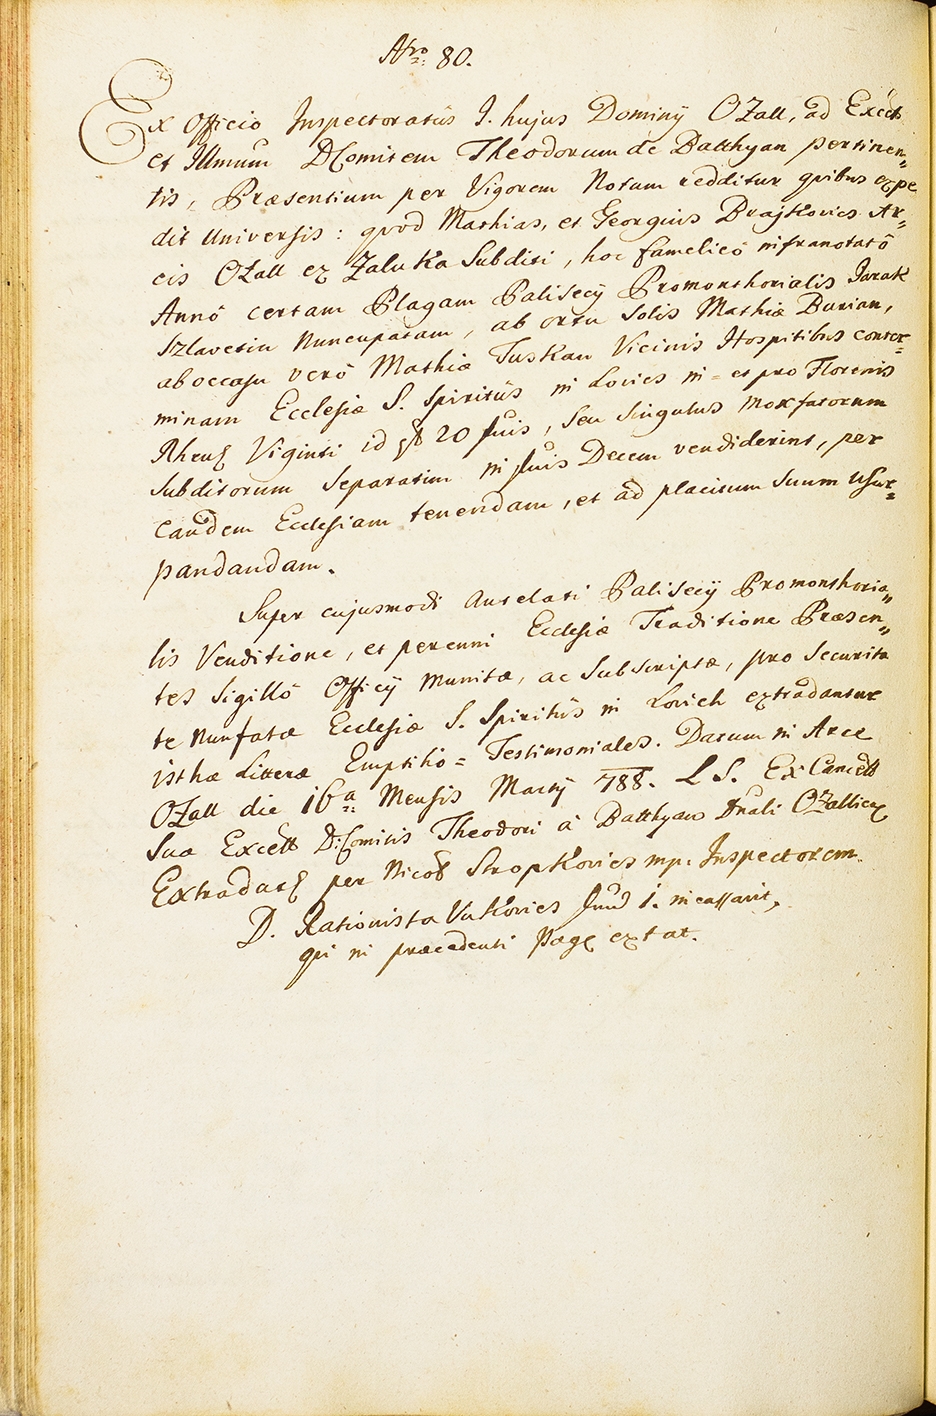 Nro: 80.
Ex Officio Inspectoratûs I. hujus Dominij OZall, ad Excell
et Illmum D Comitem Theodorum de Batthyan pertinen„
tis, Præsentium per Vigorem Notum redditur quibus expe
dit Universis: quod Mathias, et Georgius Brajkovics Ar„
cis OZall ex Zaluka Subditi, hoc famelicô infranotatô
Annô certam Plagam Palisecij Promonthorialis Jarak
Szlavetin Nuncupatam, ab ortu Solis Mathiæ Burian,
ab occasu verô Mathiæ Tuskan Vicinis Hospitibus conter=
minam Ecclesiæ S. Spiritûs in Lovics in= et pro Florenis
Rhens Viginti id est 20 suis, seu Singulus moxfatorum
Subditorum Separatim in suis Decem vendiderint, per
Eandem Ecclesiam tenendam, et ad placitum Suum Usur=
pandandam.
Super cujusmodi Antelati Palisecij Promonthoria„
lis Venditione, et perenni Ecclesiæ Traditione Præsen„
tes Sigillô Officij munitæ, ac Subscriptæ, pro Securita
te Nunfatæ Ecclesiæ S. Spiritûs in Lovich extradantur
isthæ Litteræ Emptitiô= Testimoniales. Datum in Arce
OZall die 16a Mensis Martij 788. L S. Ex Cancell
Suæ Excell D: Comitis Theodori à Batthyan Dnali OZalliens
Extradat per Nicol Stropkovics mp. Inspectorem.
D. Rationista Vukovics 1. incassavit,
qui in præcedenti Pag extat.